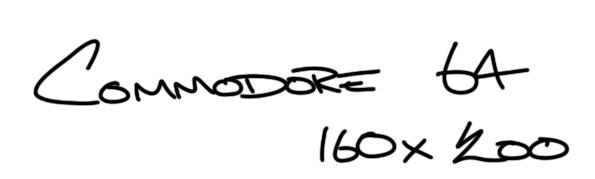 COMMODORE 64
160x200